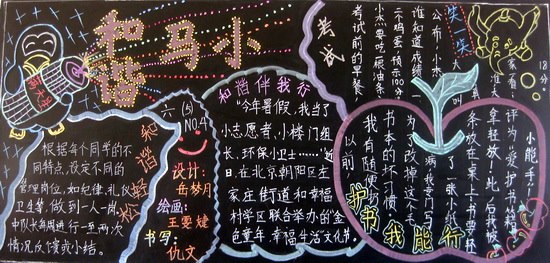 和谐
马小
六(5) NO.4
和谐
松轻
根据每个同学的不
同特点,设定不同的
管理岗位,如纪律、礼仪
卫生等,做到一人一岗,
中队长每周进行一至两次
情况反馈或小结。
设计:
岳梦月
绘画:
王雯婕
书写:
仇文
和谐伴我行
“今年暑假,我当了
小志愿者、小楼门组
长、环保小卫士……”近
日,在北京朝阳区左
家庄街道和幸福
村学区联合举办的金
色童年,幸福生活文化节。
考试
考试前的早餐,
小杰要吃一根油条
二个鸡蛋,预示100分。
谁知道成绩
公布,小杰
大叫
笑一笑
18分。
护书我能行
以前,
我有随便折
书本的坏习惯,
为了改掉这个毛
病,我专门写
了一张小纸
条放在桌上:书要轻
拿轻放!此后我被
评为“爱护书籍
小能手”!